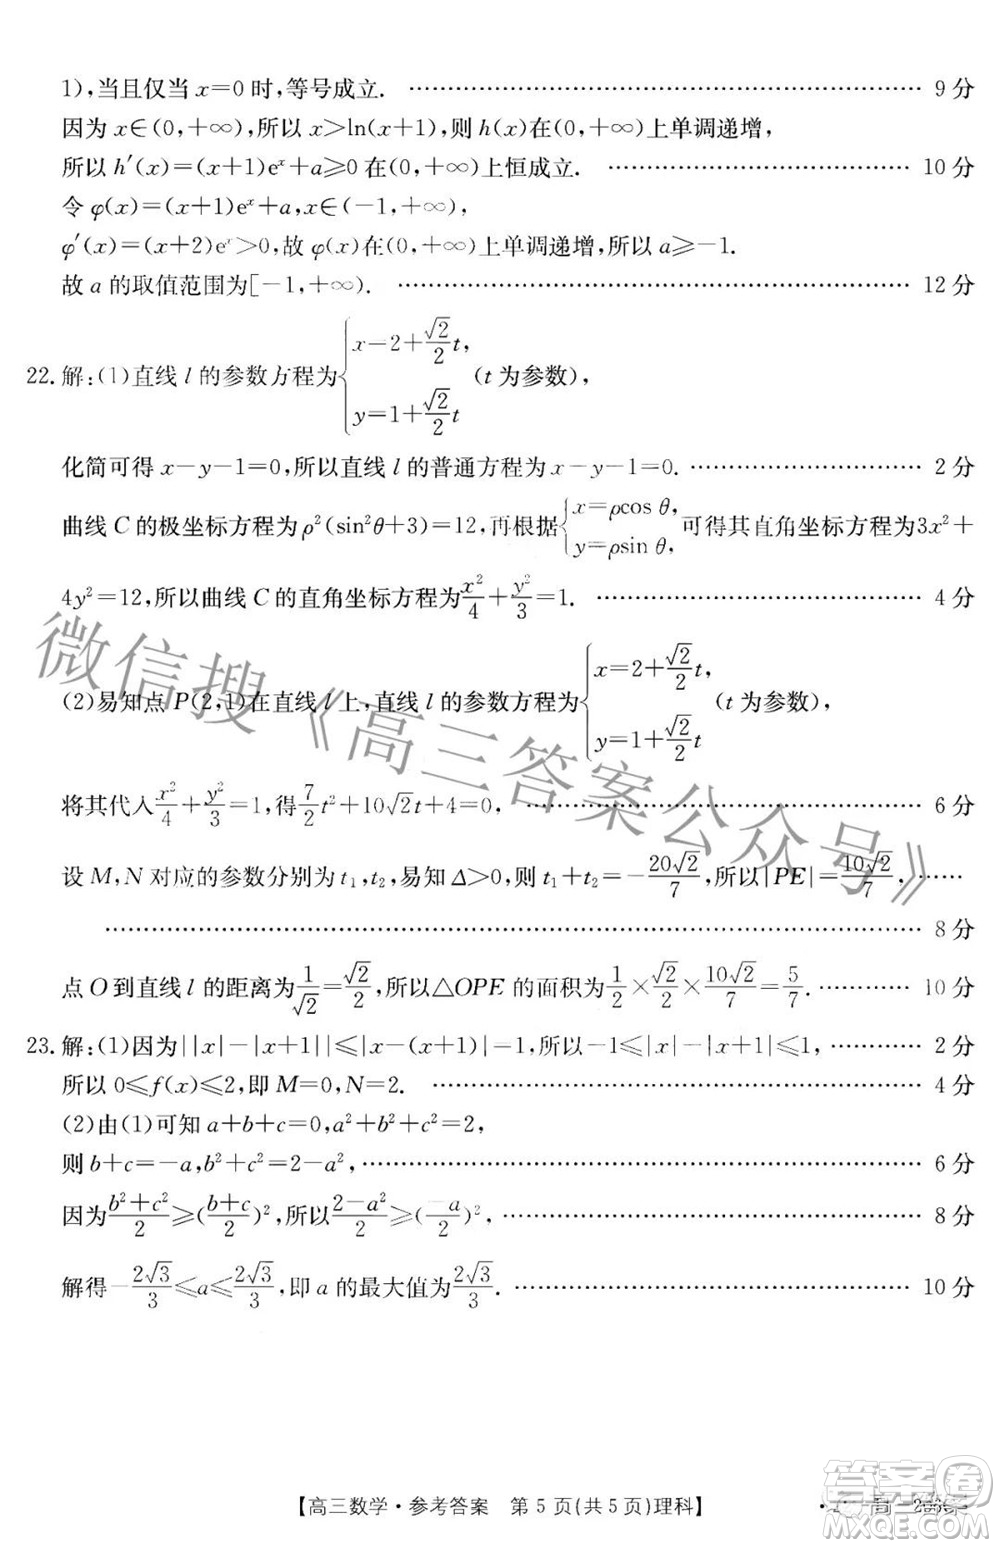 1),当且仅当 x=0 时,等号成立. ………… 9 分
因为 x∈(0,+∞),所以 x>ln(x+1),则 h(x)在(0,+∞)上单调递增,
所以 h′(x)=(x+1)eˣ+a≥0 在(0,+∞)上恒成立. ………… 10 分
令 φ(x)=(x+1)eˣ+a,x∈(-1,+∞),
φ′(x)=(x+2)eˣ>0,故 φ(x)在(0,+∞)上单调递增,所以 a≥-1.
故 a 的取值范围为[-1,+∞). ………… 12 分
22.解:(1)直线 l 的参数方程为{x=2+(√2/2)t, y=1+(√2/2)t (t 为参数),
化简可得 x-y-1=0,所以直线 l 的普通方程为 x-y-1=0. ………… 2 分
曲线 C 的极坐标方程为 ρ²(sin²θ+3)=12,再根据{x=ρcos θ, y=ρsin θ, 可得其直角坐标方程为3x²+
4y²=12,所以曲线 C 的直角坐标方程为x²/4+y²/3=1. ………… 4 分
(2)易知点 P(2,1)在直线 l 上,直线 l 的参数方程为{x=2+(√2/2)t, y=1+(√2/2)t (t 为参数),
将其代入x²/4+y²/3=1,得7/2t²+10√2t+4=0. ………… 6 分
设 M,N 对应的参数分别为 t₁,t₂,易知 Δ>0,则 t₁+t₂=-20√2/7,所以|PE|=10√2/7. ……
………… 8 分
点 O 到直线 l 的距离为1/√2=√2/2,所以△OPE 的面积为1/2×√2/2×10√2/7=5/7. ………… 10 分
23.解:(1)因为||x|-|x+1||≤|x-(x+1)|=1,所以-1≤|x|-|x+1|≤1, ………… 2 分
所以 0≤f(x)≤2,即 M=0,N=2. ………… 4 分
(2)由(1)可知 a+b+c=0,a²+b²+c²=2,
则 b+c=-a,b²+c²=2-a², ………… 6 分
因为(b²+c²)/2≥((b+c)/2)²,所以(2-a²)/2≥(-a/2)², ………… 8 分
解得-2√3/3≤a≤2√3/3,即 a 的最大值为2√3/3. ………… 10 分
【高三数学·参考答案 第 5 页(共 5 页)理科】
微信搜《高三答案公众号》
答案圈
MXQE.COM